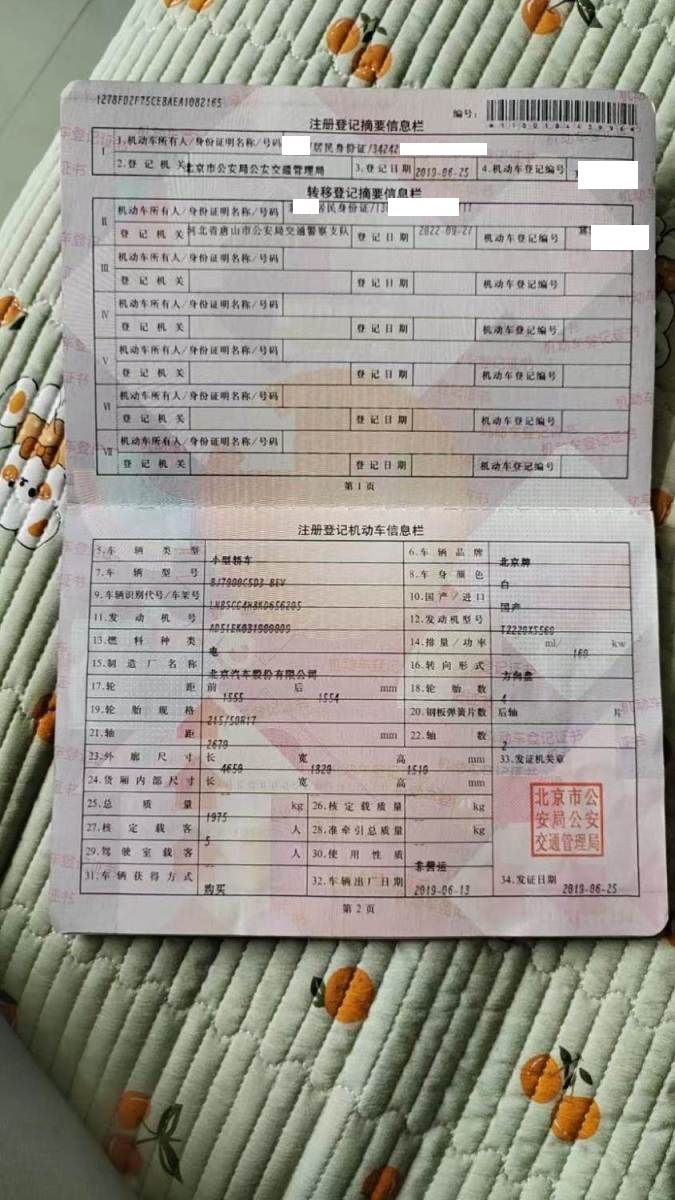 1278FDZF75CEBAEA1082165
编号:
注册登记摘要信息栏
I 1.机动车所有人/身份证明名称/号码 /居民身份证/34242
2.登记机关 北京市公安局公安交通管理局 3.登记日期 2019-06-25 4.机动车登记编号
转移登记摘要信息栏
II 机动车所有人/身份证明名称/号码 居民身份证/
登记机关 河北省唐山市公安局交通警察支队 登记日期 2022-09-27 机动车登记编号 冀
III 机动车所有人/身份证明名称/号码
登记机关 登记日期 机动车登记编号
IV 机动车所有人/身份证明名称/号码
登记机关 登记日期 机动车登记编号
V 机动车所有人/身份证明名称/号码
登记机关 登记日期 机动车登记编号
VI 机动车所有人/身份证明名称/号码
登记机关 登记日期 机动车登记编号
VII 机动车所有人/身份证明名称/号码
登记机关 登记日期 机动车登记编号
第1页
注册登记机动车信息栏
5.车辆类型 小型轿车 6.车辆品牌 北京牌
7.车辆型号 BJ7000C5D3-BEV 8.车身颜色 白
9.车辆识别代号/车架号 LNBSCC4H8KD656205 10.国产/进口 国产
11.发动机号 AD51EK031900009 12.发动机型号 TZ220XS560
13.燃料种类 电 14.排量/功率 ml/ 160 kw
15.制造厂名称 北京汽车股份有限公司 16.转向形式 方向盘
17.轮距 前 1555 后 1554 mm 18.轮胎数 4
19.轮胎规格 215/50R17 20.钢板弹簧片数 后轴 片
21.轴距 2670 mm 22.轴数 2
23.外廓尺寸 长 4650 宽 1820 高 1510 mm 33.发证机关章
24.货厢内部尺寸 长 宽 高 mm
25.总质量 1975 kg 26.核定载质量 -- kg
27.核定载客 5 人 28.准牵引总质量 -- kg
29.驾驶室载客 -- 人 30.使用性质 非营运
31.车辆获得方式 购买 32.车辆出厂日期 2019-06-13 34.发证日期 2019-06-25
北京市公
安局公安
交通管理局
第2页